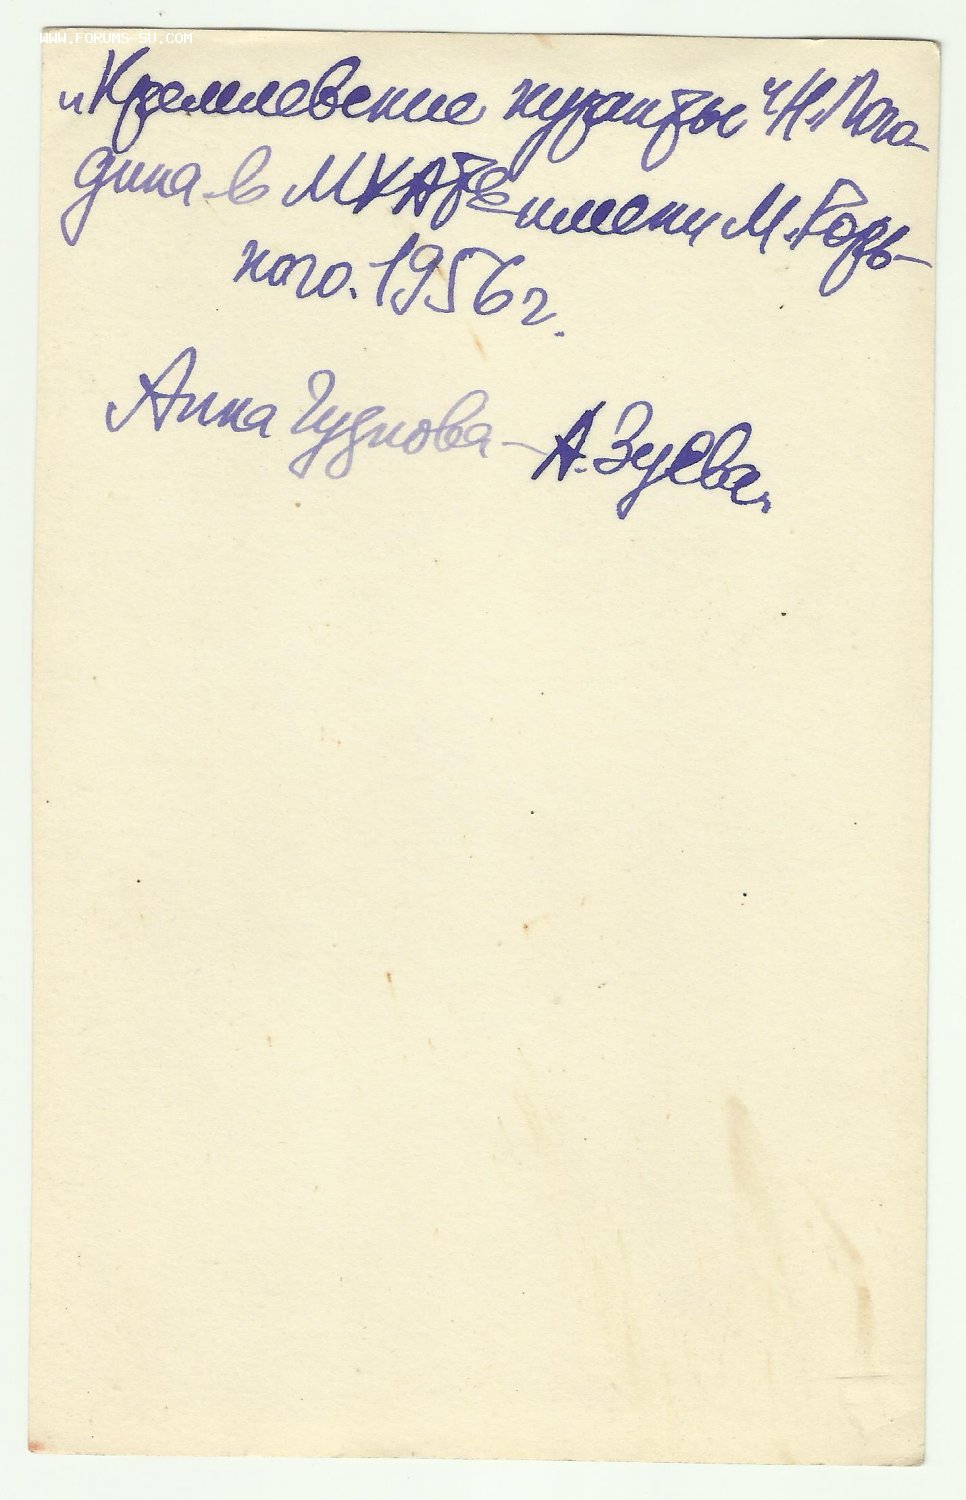 WWW.FORUMS-SU.COM
„Кремлевские куранты" Н. Пого-
дина в МХАТе имени М. Горь-
кого. 1956 г.
Анна Чуднова - А. Зуева.